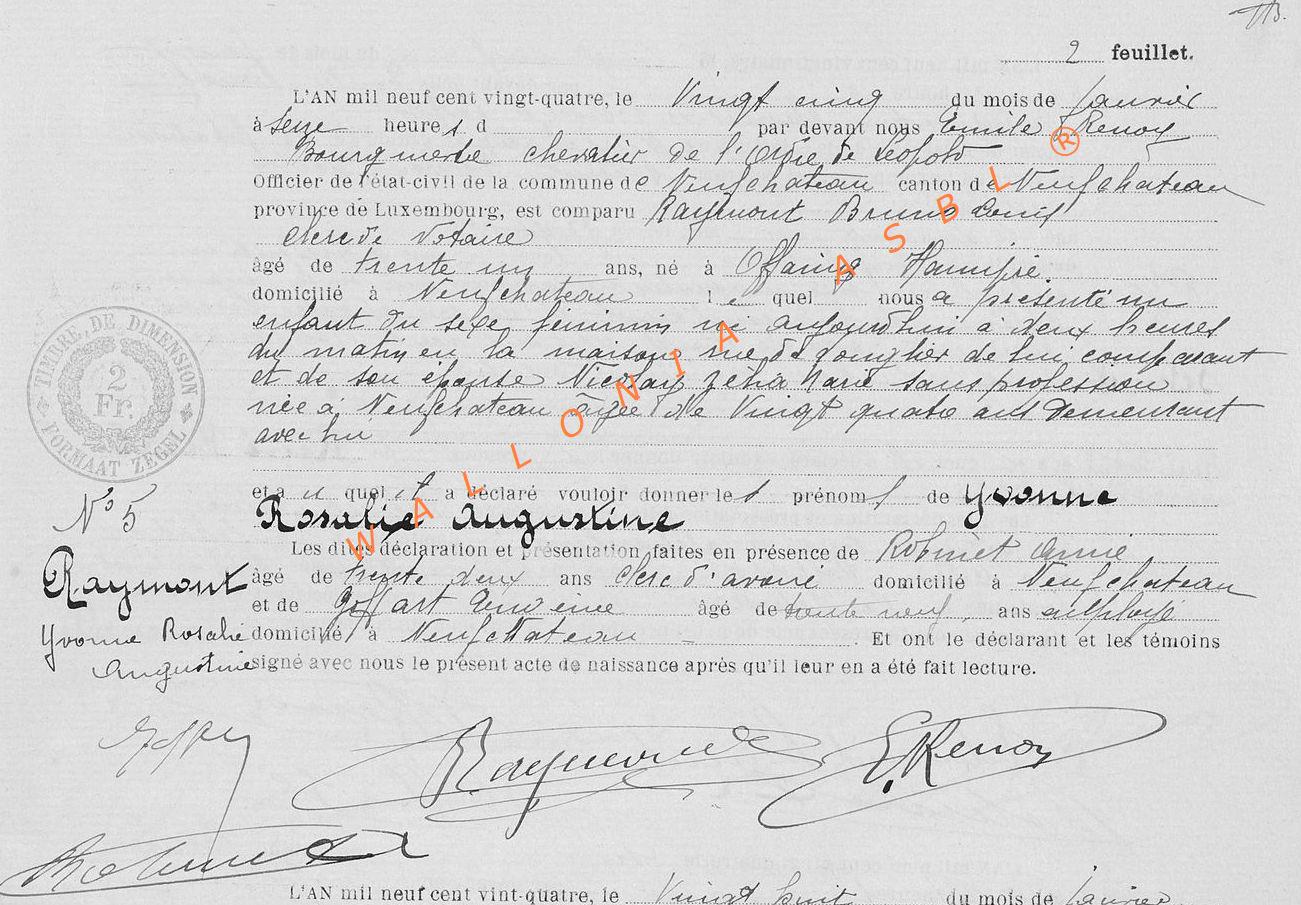 2 feuillet.
L'AN mil neuf cent vingt-quatre, le Vingt cinq du mois de Janvier
à seize heures d par devant nous Emile Renoy
Bourgmestre chevalier de l'Ordre de Leopold
Officier de l'état-civil de la commune de Neufchateau canton de Neufchateau
province de Luxembourg, est comparu Raymont Bruno Louis
clerc de Notaire
âgé de trente un ans, né à Offaing Hamipré.
domicilié à Neufchateau le quel nous a présenté un
enfant du sexe féminin né aujourd'hui à deux heures
du matin en la maison rue de lui comparant
et de son épouse Nicolay Zélia Marie sans profession
née a Neufchateau âgée de Vingt quatre ans demeurant
avec lui
et a u quel il a déclaré vouloir donner les prénoms de Yvonne
Rosalie Augustine
Les dites déclaration et présentation faites en présence de Robinet Aimé
âgé de trente deux ans clerc d'avoué domicilié à Neufchateau
et de Goffart âgé de trente neuf. ans employé
domicilié à Neufchateau - . Et ont le déclarant et les témoins
signé avec nous le présent acte de naissance après qu'il leur en a été fait lecture.
N° 5
Raymont
Yvonne Rosalie
Augustine
TIMBRE DE DIMENSION
2
Fr.
FORMAAT ZEGEL
WALLONIA ASBL ®
Raymond E. Renoy
L'AN mil neuf cent vint-quatre, le Vingt huit du mois de Janvier